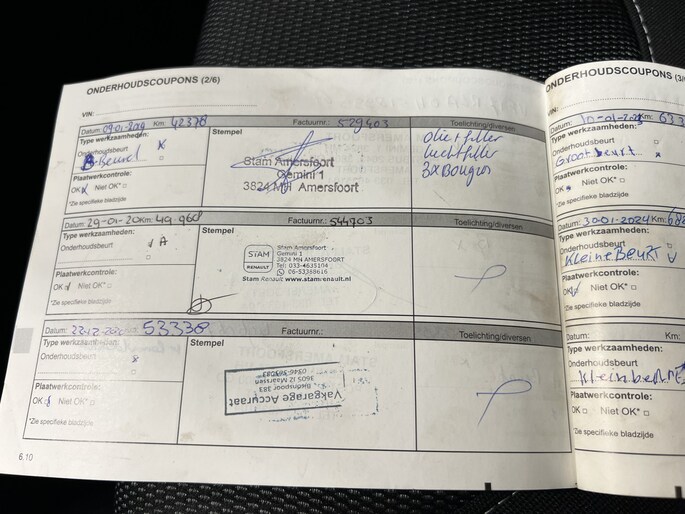 ONDERHOUDSCOUPONS (2/6)
VIN:
Datum: 09-01-2019 Km: 42378 Factuurnr.: 529403 Toelichting/diversen
Type werkzaamheden:
Onderhoudsbeurt x
B-Beurt
Plaatwerkcontrole:
OK Niet OK*
*Zie specifieke bladzijde
Stempel
Stam Amersfoort
Gemini 1
3824 MH Amersfoort
olie+filter
luchtfilter
3x Bougies
Datum: 29-01-20 Km: 49.960 Factuurnr.: 544903 Toelichting/diversen
Type werkzaamheden:
Onderhoudsbeurt A
Plaatwerkcontrole:
OK Niet OK*
*Zie specifieke bladzijde
Stempel
STAM
RENAULT
Stam Amersfoort
Gemini 1
3824 MH AMERSFOORT
Tel: 033-4635104
06-53388616
Stam Renault www.stamrenault.nl
Datum: 53338 Factuurnr.: Toelichting/diversen
Type werkzaamheden:
Onderhoudsbeurt x
Plaatwerkcontrole:
OK Niet OK*
*Zie specifieke bladzijde
Stempel
Vakgarage Accuraat
Bisonspoor 383
3605 JZ Maarssen
6.10
ONDERHOUDSCOUPONS (3/
VIN:
Datum: Km: 633
Type werkzaamheden:
Onderhoudsbeurt
Groot beurt x
Plaatwerkcontrole:
OK Niet OK*
*Zie specifieke bladzijde
Datum: 30-01-2024 Km:
Type werkzaamheden:
Onderhoudsbeurt
Kleine Beurt V
Plaatwerkcontrole:
OK Niet OK*
*Zie specifieke bladzijde
Datum: Km:
Type werkzaamheden:
Onderhoudsbeurt
Plaatwerkcontrole:
OK Niet OK*
*Zie specifieke bladzijde